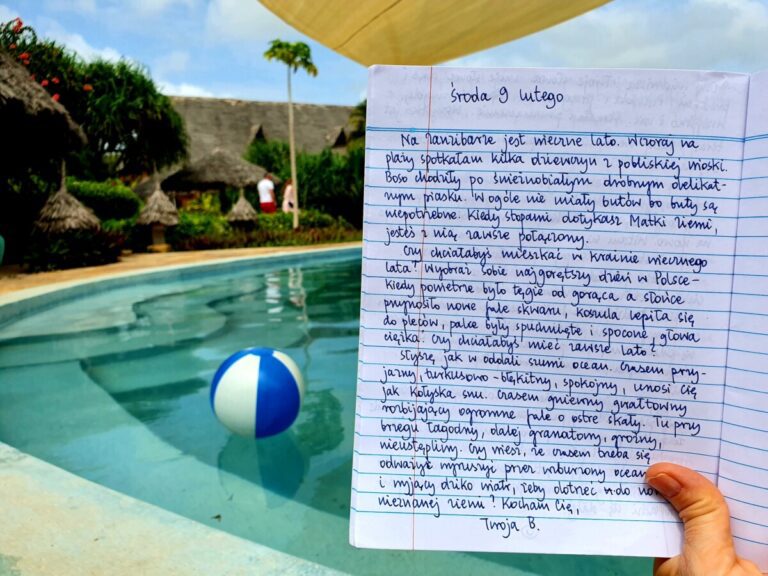 środa 9 lutego
Na Zanzibarze jest wieczne lato. Wczoraj na
plaży spotkałam kilka dziewczyn z pobliskiej wioski.
Boso chodziły po śnieżnobiałym drobnym delikat-
nym piasku. W ogóle nie miały butów bo buty są
niepotrzebne. Kiedy stopami dotykasz Matki Ziemi,
jesteś z nią zawsze połączony.
Czy chciałabyś mieszkać w krainie wiecznego
lata? Wyobraź sobie najgorętszy dzień w Polsce -
kiedy powietrze było tęgie od gorąca a słońce
przynosiło nowe fale skwaru, koszula lepiła się
do pleców, palce były spuchnięte i spocone, głowa
ciężka? Czy chciałabyś mieć zawsze lato?
Słyszę, jak w oddali szumi ocean. Czasem przy-
jazny, turkusowo-błękitny, spokojny, unosi Cię
jak kołyska snu. Czasem gniewny gwałtowny
rozbijający ogromne fale o ostre skały. Tu przy
brzegu łagodny, dalej granatowy, groźny,
nieustępliwy. Czy wiesz, że czasem trzeba się
odważyć wyruszyć przez wzburzony ocean
i wyjący dziko wiatr, żeby dotrzeć do
nieznanej ziemi? Kocham Cię,
Twoja B.